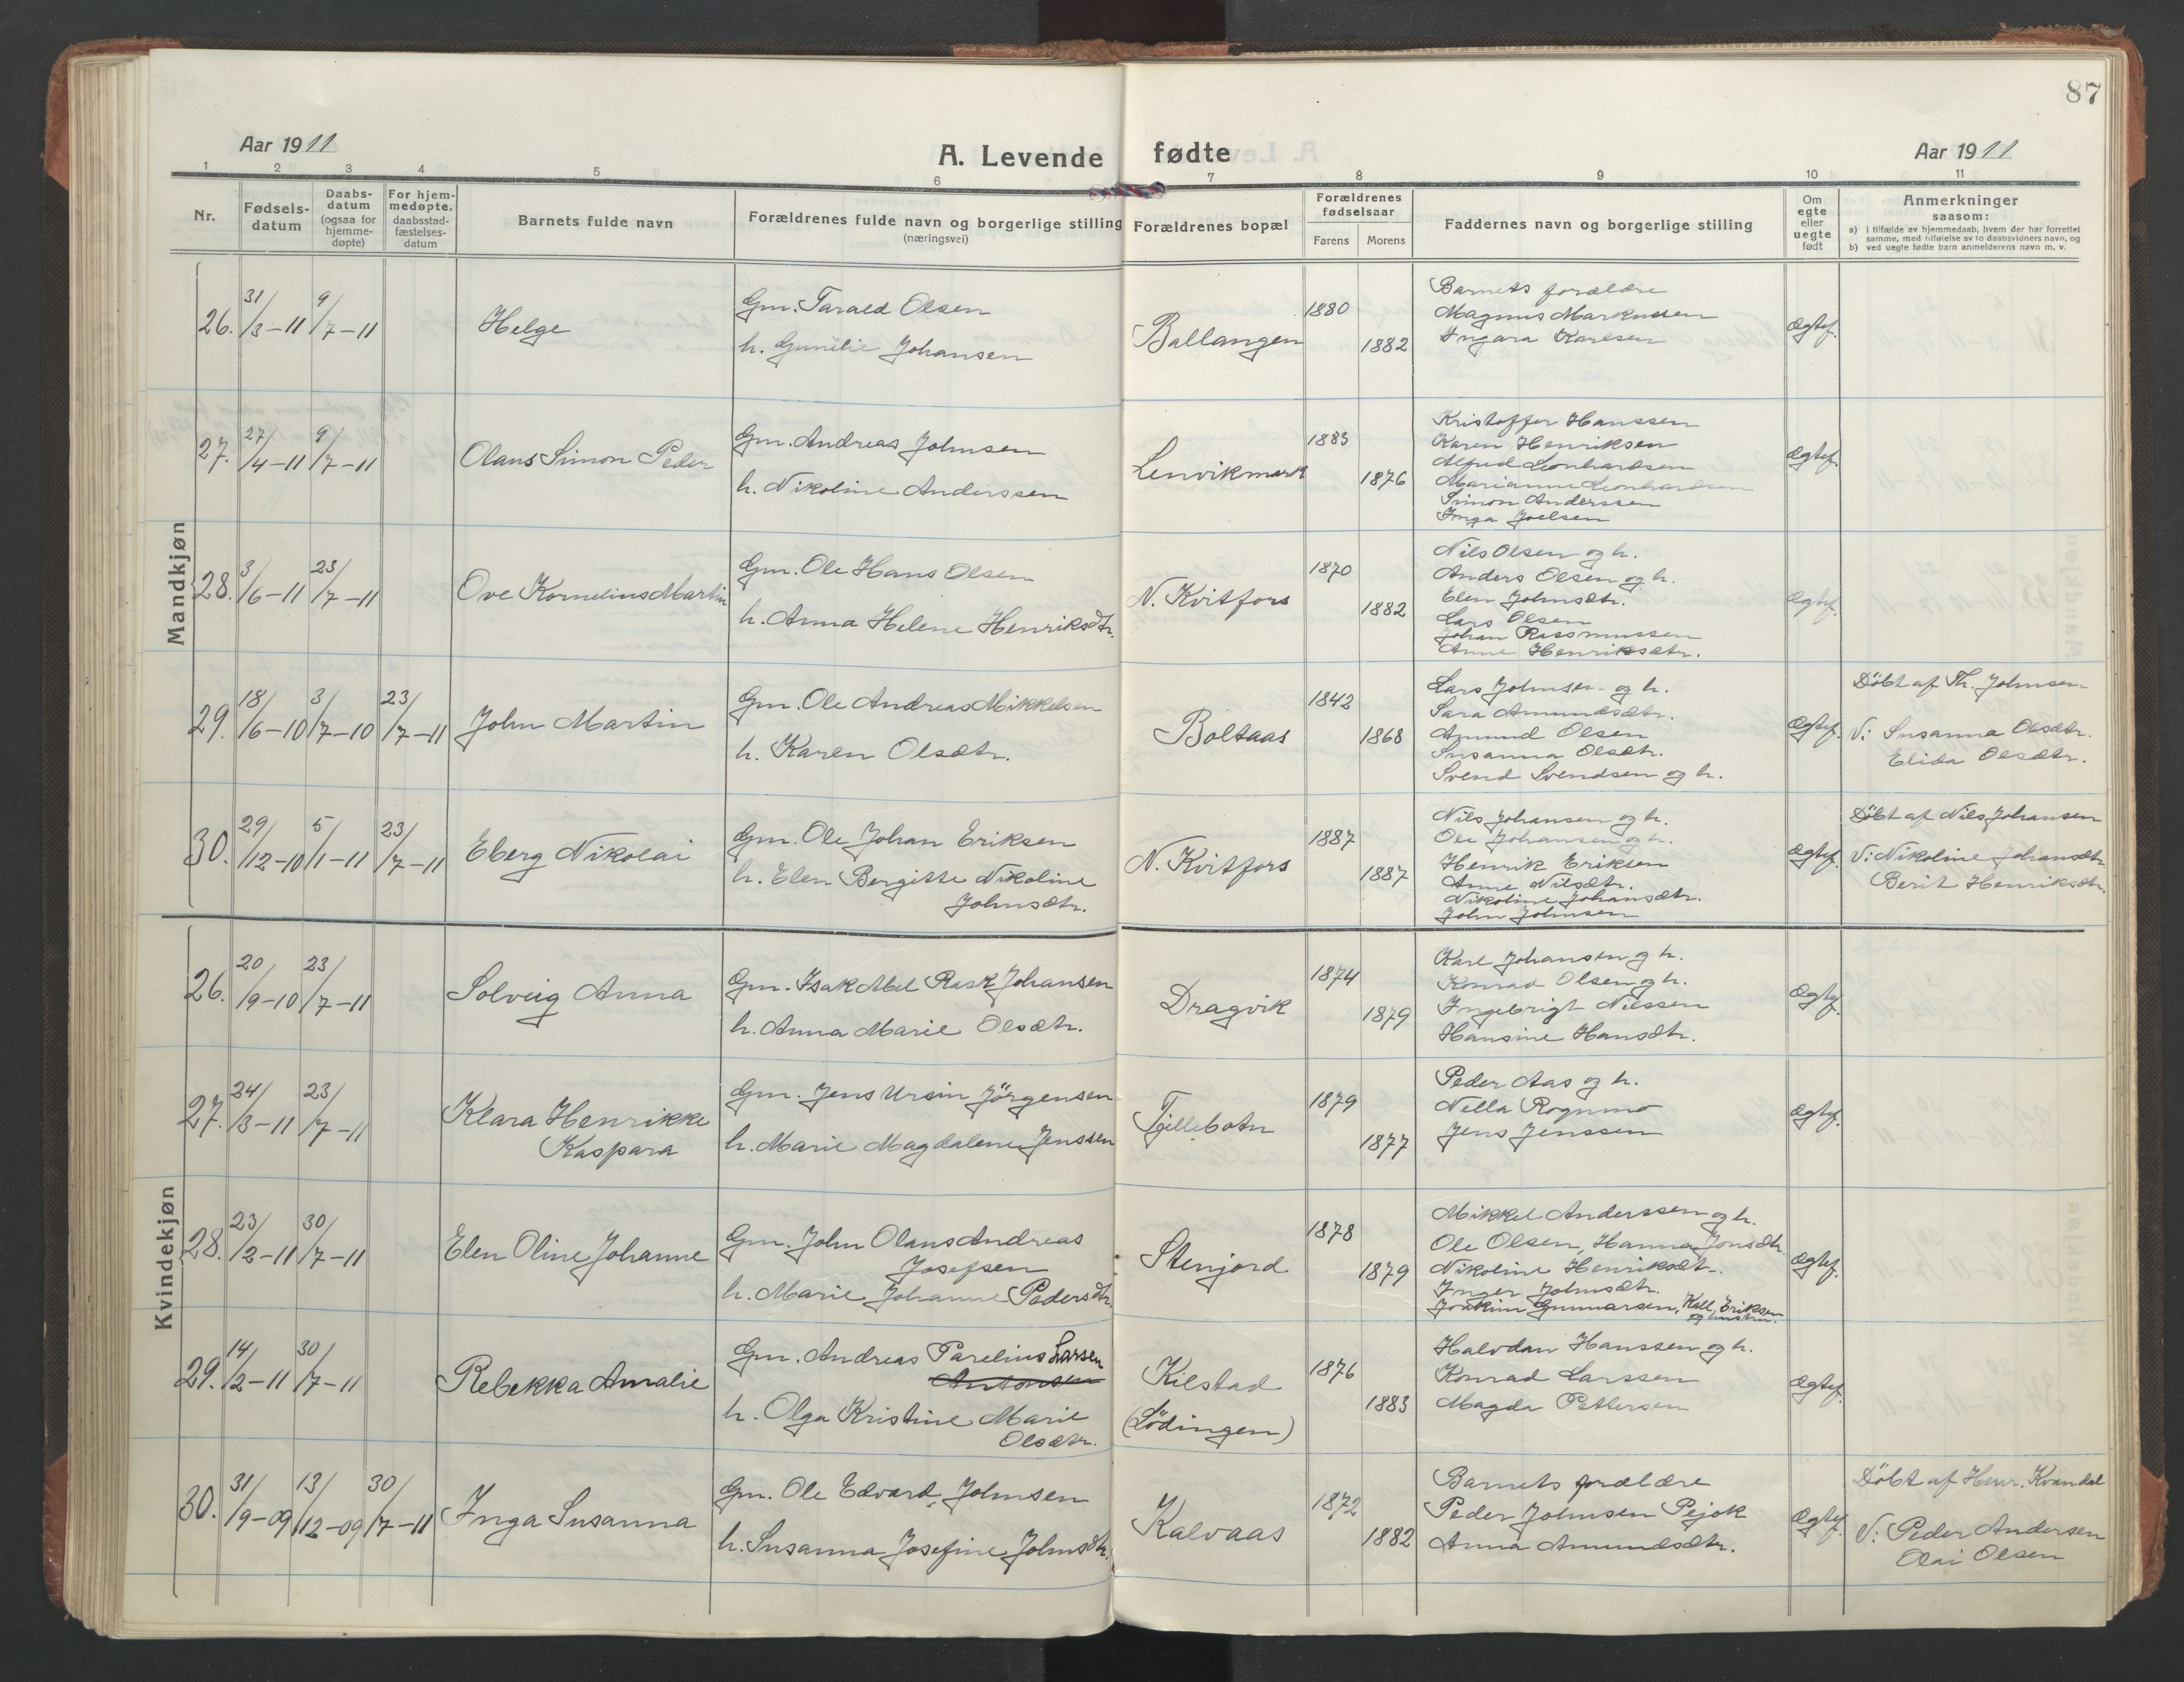 87
Aar 1911
A. Levende fødte
Aar 1911
1 2 3 4 5 6 7 8 9 10 11
Nr.
Fødsels-
datum
Daabs-
datum
(ogsaa for
hjemme-
døpte)
For hjem-
medøpte.
daabsstad-
fæstelses-
datum
Barnets fulde navn
Forældrenes fulde navn og borgerlige stilling
(næringsvei)
Forældrenes bopæl
Forældrenes
fødselsaar
Farens Morens
Faddernes navn og borgerlige stilling
Om
egte
eller
uegte
født
Anmerkninger
saasom:
a) i tilfælde av hjemmedaab, hvem der har forrettet
samme, med tilføielse av to daabsvidners navn, og
b) ved uegte fødte barn anmelderens navn m. v.
Mandkjøn
26. 31/3-11 9/7-11
Helge
Gm. Tarald Olsen
h. Gunelie Johansen
Ballangen
1880
1882
Barnets forældre
Magnus Markussen
Ingara Karlsen
Ægtef.
27. 27/4-11 9/7-11
Olaus Simon Peder
Gm. Andreas Johnsen
h. Nikoline Anderssen
Lenvikmark
1883
1876
Kristoffer Hanssen
Karen Henriksen
Alfred Leonhardsen
Marianne Leonhardsen
Simon Anderssen
Inga Joelsen
Ægtef.
28. 3/6-11 23/7-11
Ove Kornelius Martin
Gm. Ole Hans Olsen
h. Anna Helene Henriksdtr.
N. Kvitfors
1870
1882
Nils Olsen og h.
Anders Olsen og h.
Elen Johnsdtr.
Lars Olsen
Johan Rassmussen
Anne Henriksdtr.
Ægtef.
29. 18/6-10 3/7-10 23/7-11
John Martin
Gm. Ole Andreas Mikkelsen
h. Karen Olsdtr.
Boltaas
1842
1868
Lars Johnsen og h.
Sara Amundsdtr.
Amund Olsen
Susanna Olsdtr.
Svend Svendsen og h.
Ægtef.
Döbt af Th. Johnsen
V: Susanna Olsdtr.
Elida Olsdtr.
30. 29/12-10 5/1-11 23/7-11
Eberg Nikolai
Gm. Ole Johan Eriksen
h. Elen Bergitte Nikoline
Johnsdtr.
N. Kvitfors
1887
1887
Nils Johansen og h.
Ole Johansen og h.
Henrik Eriksen
Anne Nilsdtr.
Nikoline Johansdtr.
John Johnsen
Ægtef.
Döbt af Nils Johansen
V: Nikoline Johansdtr.
Berit Henriksdtr.
Kvindekjøn
26. 20/9-10 23/7-11
Solveig Anna
Gm. Isak Abel Rask Johansen
h. Anna Marie Olsdtr.
Dragvik
1874
1879
Karl Johansen og h.
Konrad Olsen og h.
Ingebrigt Nilssen
Hansine Hansdtr.
Ægtef.
27. 24/3-11 23/7-11
Klara Henrikke
Kaspara
Gm. Jens Ursin Jörgensen
h. Marie Magdalene Jenssen
Tjellebotn
1879
1877
Peder Aas og h.
Nella Rognmo
Jens Jenssen
Ægtef.
28. 23/2-11 30/7-11
Elen Oline Johanne
Gm. John Olaus Andreas
Josefsen
h. Marie Johanne Pedersdtr.
Stenjord
1878
1879
Mikkel Anderssen og h.
Ole Olsen, Hanna Jonsdtr.
Nikoline Henriksdtr.
Inger Johnsdtr.
Joakim Gunnarsen, Kall Eriksen
og hustru.
Ægtef.
29. 14/2-11 30/7-11
Rebekka Amalie
Gm. Andreas Parelius Larsen
Antonsen
h. Olga Kristine Marie
Olsdtr.
Kilstad
(Lödingen)
1876
1883
Halvdan Hanssen og h.
Konrad Larssen
Magda Pettersen
Ægtef.
30. 31/9-09 13/12-09 30/7-11
Inga Susanna
Gm. Ole Edvard Johnsen
h. Susanna Josefine Johnsdtr.
Kalvaas
1872
1882
Barnets forældre
Peder Johnsen Pejok
Anna Amundsdtr.
Ægtef.
Döbt af Henr. Kvandal
V: Peder Andersen
Olai Olsen